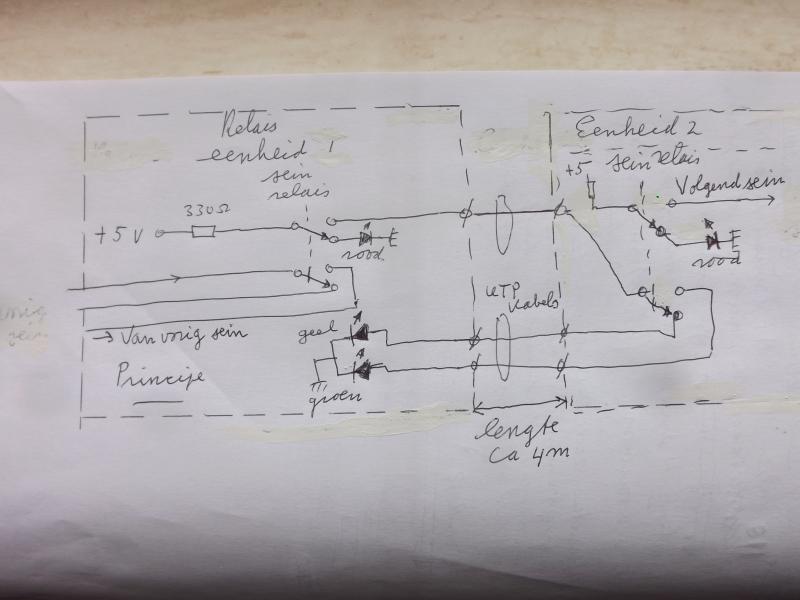 Relais
eenheid 1
sein
relais
330Ω
+5V
rood
→ Van vorig sein
Principe
geel
groen
UTP
kabels
lengte
ca 4m
Eenheid 2
+5
sein relais
Volgend sein
rood